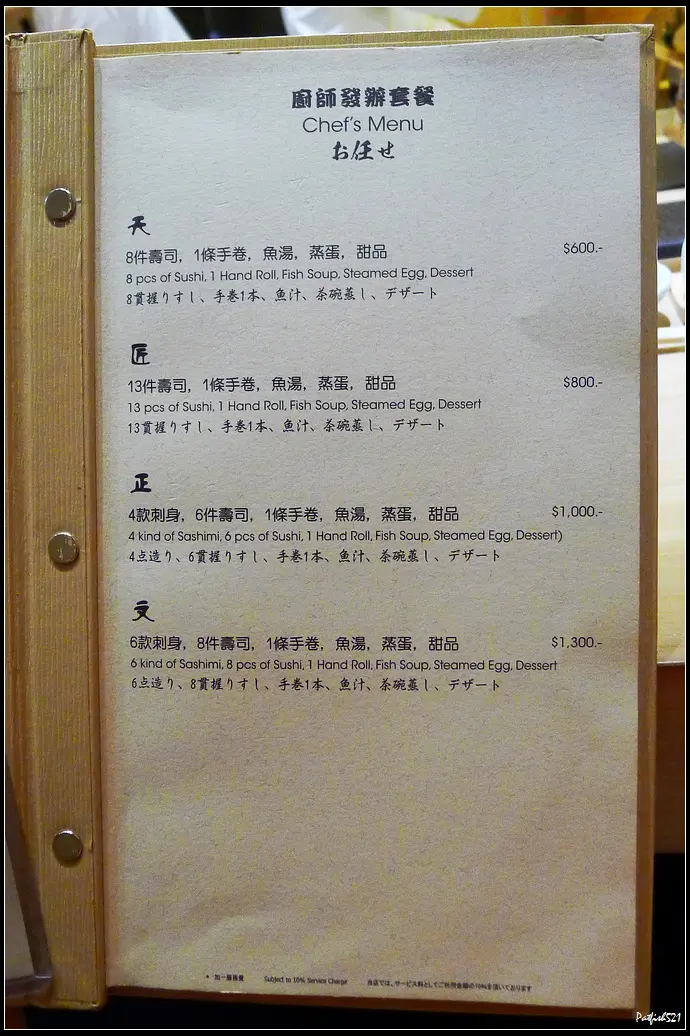 廚師發辦套餐
Chef's Menu
お任せ
天
8件壽司, 1條手卷, 魚湯, 蒸蛋, 甜品 $600.-
8 pcs of Sushi, 1 Hand Roll, Fish Soup, Steamed Egg, Dessert
8貫握りすし、手巻1本、魚汁、茶碗蒸し、デザート
匠
13件壽司, 1條手卷, 魚湯, 蒸蛋, 甜品 $800.-
13 pcs of Sushi, 1 Hand Roll, Fish Soup, Steamed Egg, Dessert
13貫握りすし、手巻1本、魚汁、茶碗蒸し、デザート
正
4款刺身, 6件壽司, 1條手卷, 魚湯, 蒸蛋, 甜品 $1,000.-
4 kind of Sashimi, 6 pcs of Sushi, 1 Hand Roll, Fish Soup, Steamed Egg, Dessert)
4点造り、6貫握りすし、手巻1本、魚汁、茶碗蒸し、デザート
文
6款刺身, 8件壽司, 1條手卷, 魚湯, 蒸蛋, 甜品 $1,300.-
6 kind of Sashimi, 8 pcs of Sushi, 1 Hand Roll, Fish Soup, Steamed Egg, Dessert
6点造り、8貫握りすし、手巻1本、魚汁、茶碗蒸し、デザート
* 加一服務費 Subject to 10% Service Charge 当店では、サービス料としてご利用金額の10%を頂いております
Patfish521